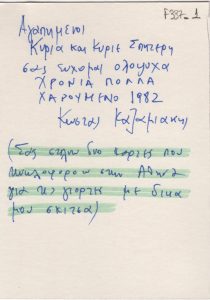 F387_1
Αγαπημενοι
Κυρια και Κυριε Σπητερη
σας ευχομαι ολοψυχα
ΧΡΟΝΙΑ ΠΟΛΛΑ
ΧΑΡΟΥΜΕΝΟ 1982
Κωστας Καζαμιακης
(Σας στελνω δυο καρτες που
κυκλοφορουν στην Αθηνα
για τις γιορτες με δικα
μου σκιτσα)